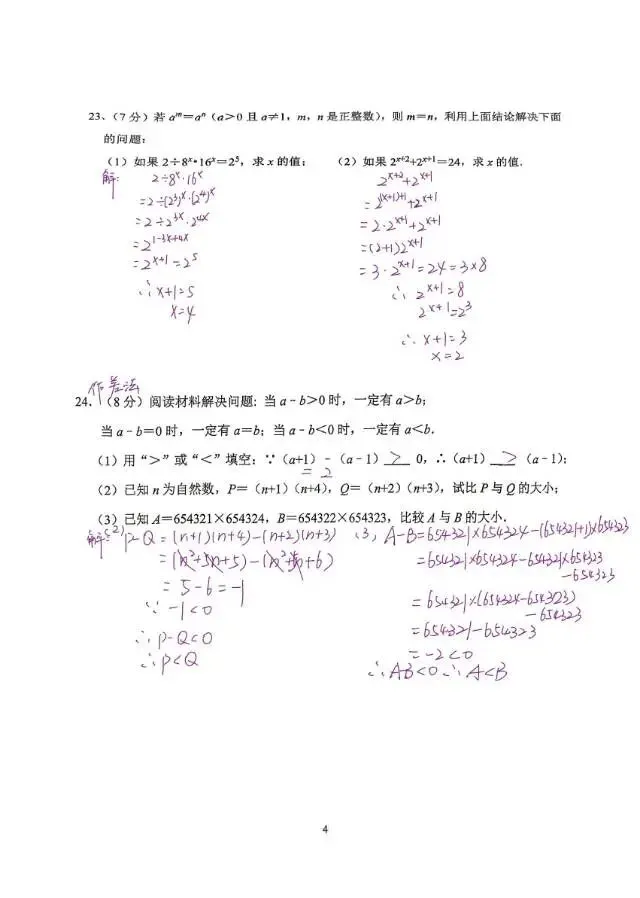 23、（7 分）若 aᵐ＝aⁿ（a＞0 且 a≠1，m，n 是正整数），则 m＝n，利用上面结论解决下面
的问题：
（1）如果 2÷8ˣ•16ˣ＝2⁵，求 x 的值；
解： 2÷8ˣ·16ˣ
=2÷(2³)ˣ·(2⁴)ˣ
=2÷2³ˣ·2⁴ˣ
=2¹⁻³ˣ⁺⁴ˣ
=2ˣ⁺¹=2⁵
∴x+1=5
x=4
（2）如果 2ˣ⁺²+2ˣ⁺¹＝24，求 x 的值.
2ˣ⁺²+2ˣ⁺¹
=2⁽ˣ⁺¹⁾⁺¹+2ˣ⁺¹
=2·2ˣ⁺¹+2ˣ⁺¹
=(2+1)2ˣ⁺¹
=3·2ˣ⁺¹=24=3×8
∴ 2ˣ⁺¹=8
2ˣ⁺¹=2³
∴ x+1=3
x=2
作差法
24、（8 分）阅读材料解决问题: 当 a﹣b>0 时，一定有 a>b；
当 a﹣b=0 时，一定有 a=b；当 a﹣b<0 时，一定有 a<b.
（1）用“>”或“<”填空：∵（a+1）﹣（a﹣1） > 0，∴（a+1） > （a﹣1）；
= 2
（2）已知 n 为自然数，P＝（n+1）（n+4），Q＝（n+2）（n+3），试比 P 与 Q 的大小；
（3）已知 A＝654321×654324，B＝654322×654323，比较 A 与 B 的大小.
解：(2) P-Q=(n+1)(n+4)-(n+2)(n+3)
=(n²+5n+5)-(n²+5n+6)
=5-6=-1
∵ -1<0
∴ P-Q<0
∴ P<Q
(3) A-B=654321×654324-(654321+1)×654323
=654321×654324-654321×654323
-654323
=654321×(654324-654323)
-654323
=654321-654323
=-2<0
∴AB<0 ∴A<B
4